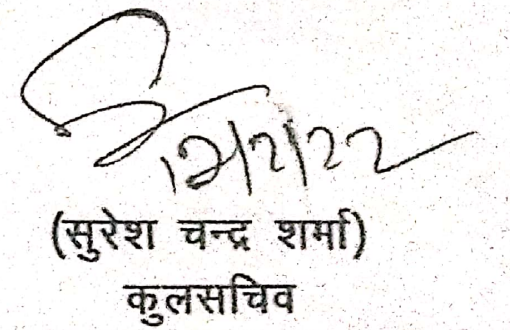 12/2/22
(सुरेश चन्द्र शर्मा)
कुलसचिव